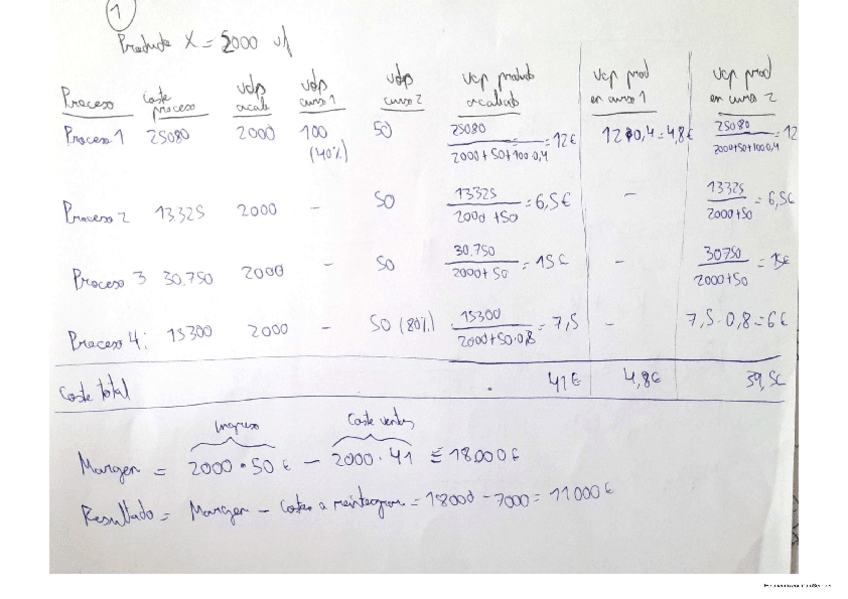 1
Producto X = 2000 u/
Proceso coste proceso udp acab udp curso 1 udp curso 2 ucp product acabado ucp prod en curso 1 ucp prod en curso 2
Proceso 1 25080 2000 100 (40%) 50 25080 / 2000+50+100·0,4 = 12€ 12·0,4=4,8€ 25080 / 2000+50+100·0,4 = 12
Proceso 2 13325 2000 - 50 13325 / 2000+50 = 6,5€ - 13325 / 2000+50 = 6,5€
Proceso 3 30.750 2000 - 50 30.750 / 2000+50 = 15€ - 30750 / 2000+50 = 15€
Proceso 4: 15300 2000 - 50 (80%) 15300 / 2000+50·0,8 = 7,5 - 7,5·0,8=6€
Coste total 41€ 4,8€ 39,5€
Ingreso Coste ventas
Margen = 2000·50€ - 2000·41 = 18000€
Resultado = Margen - Costes a reintegrar = 18000 - 7000 = 11000€